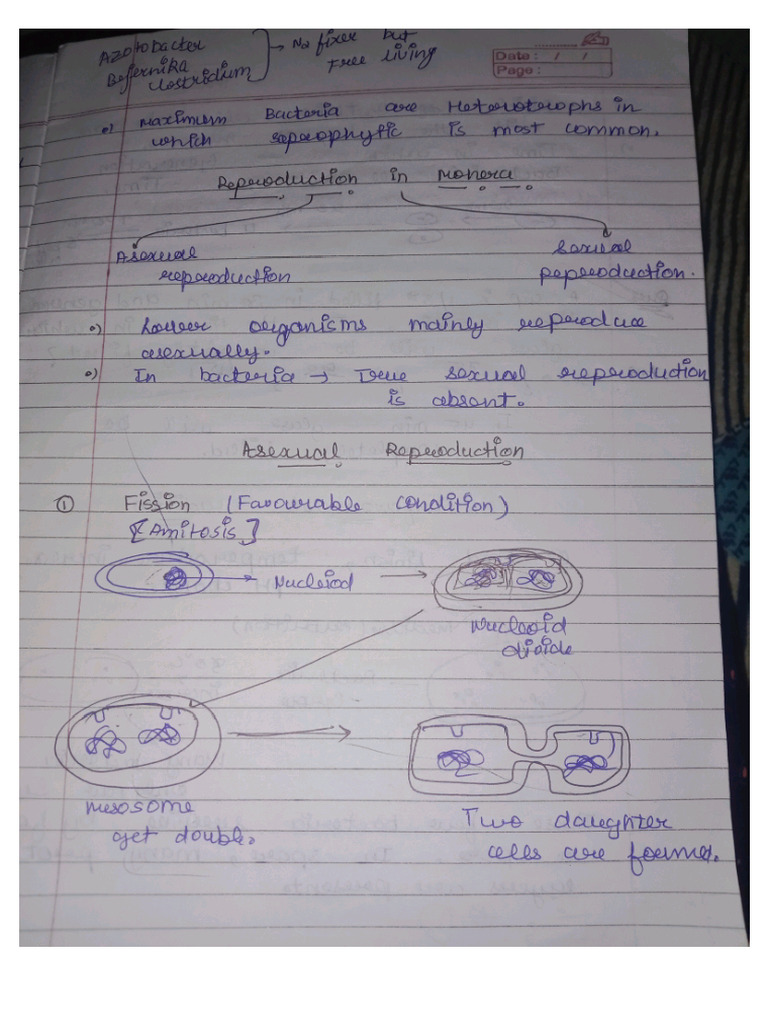 Azotobacter
Beijernika
Clostridium
N2 fixer but
Free living
Date : / /
Page :
Maximum Bacteria are Heterotrophs in
which saprophytic is most common.
Reproduction in Monera
Asexual
reproduction
Sexual
reproduction.
Lower organisms mainly reproduce
asexually.
In bacteria → True sexual reproduction
is absent.
Asexual Reproduction
① Fission (Favourable condition)
[Amitosis]
Nucleiod
Nucleoid
divide
mesosome
get double.
Two daughter
cells are formed.